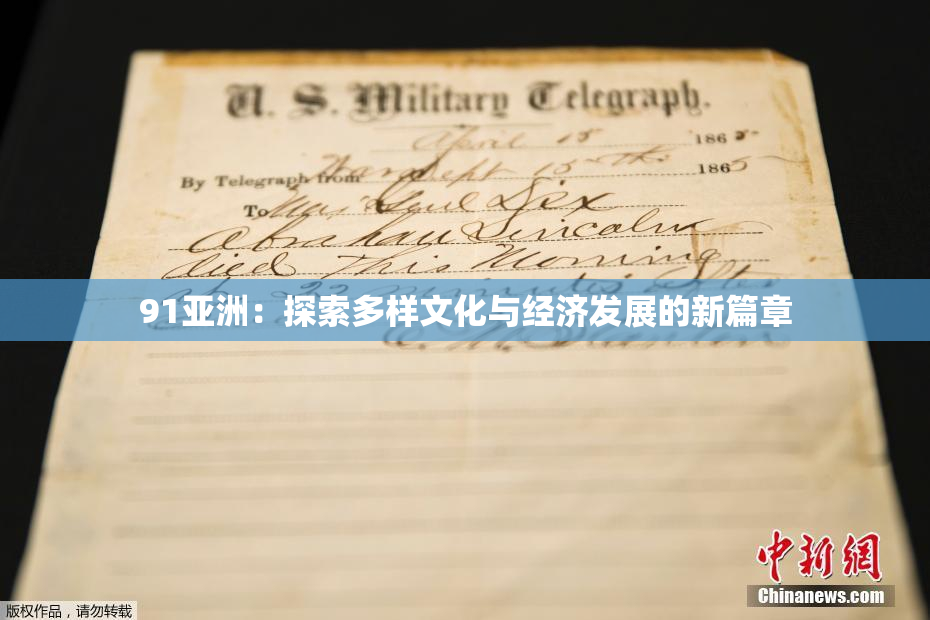 U. S. Military Telegraph.
April 15 1865
By Telegraph from War Dept 15th 1865
To Maj Genl Dix
Abraham Lincoln
died This Morning
at 22 minutes after
91亚洲：探索多样文化与经济发展的新篇章
E. M. Stanton
中新网
Chinanews.com
版权作品，请勿转载